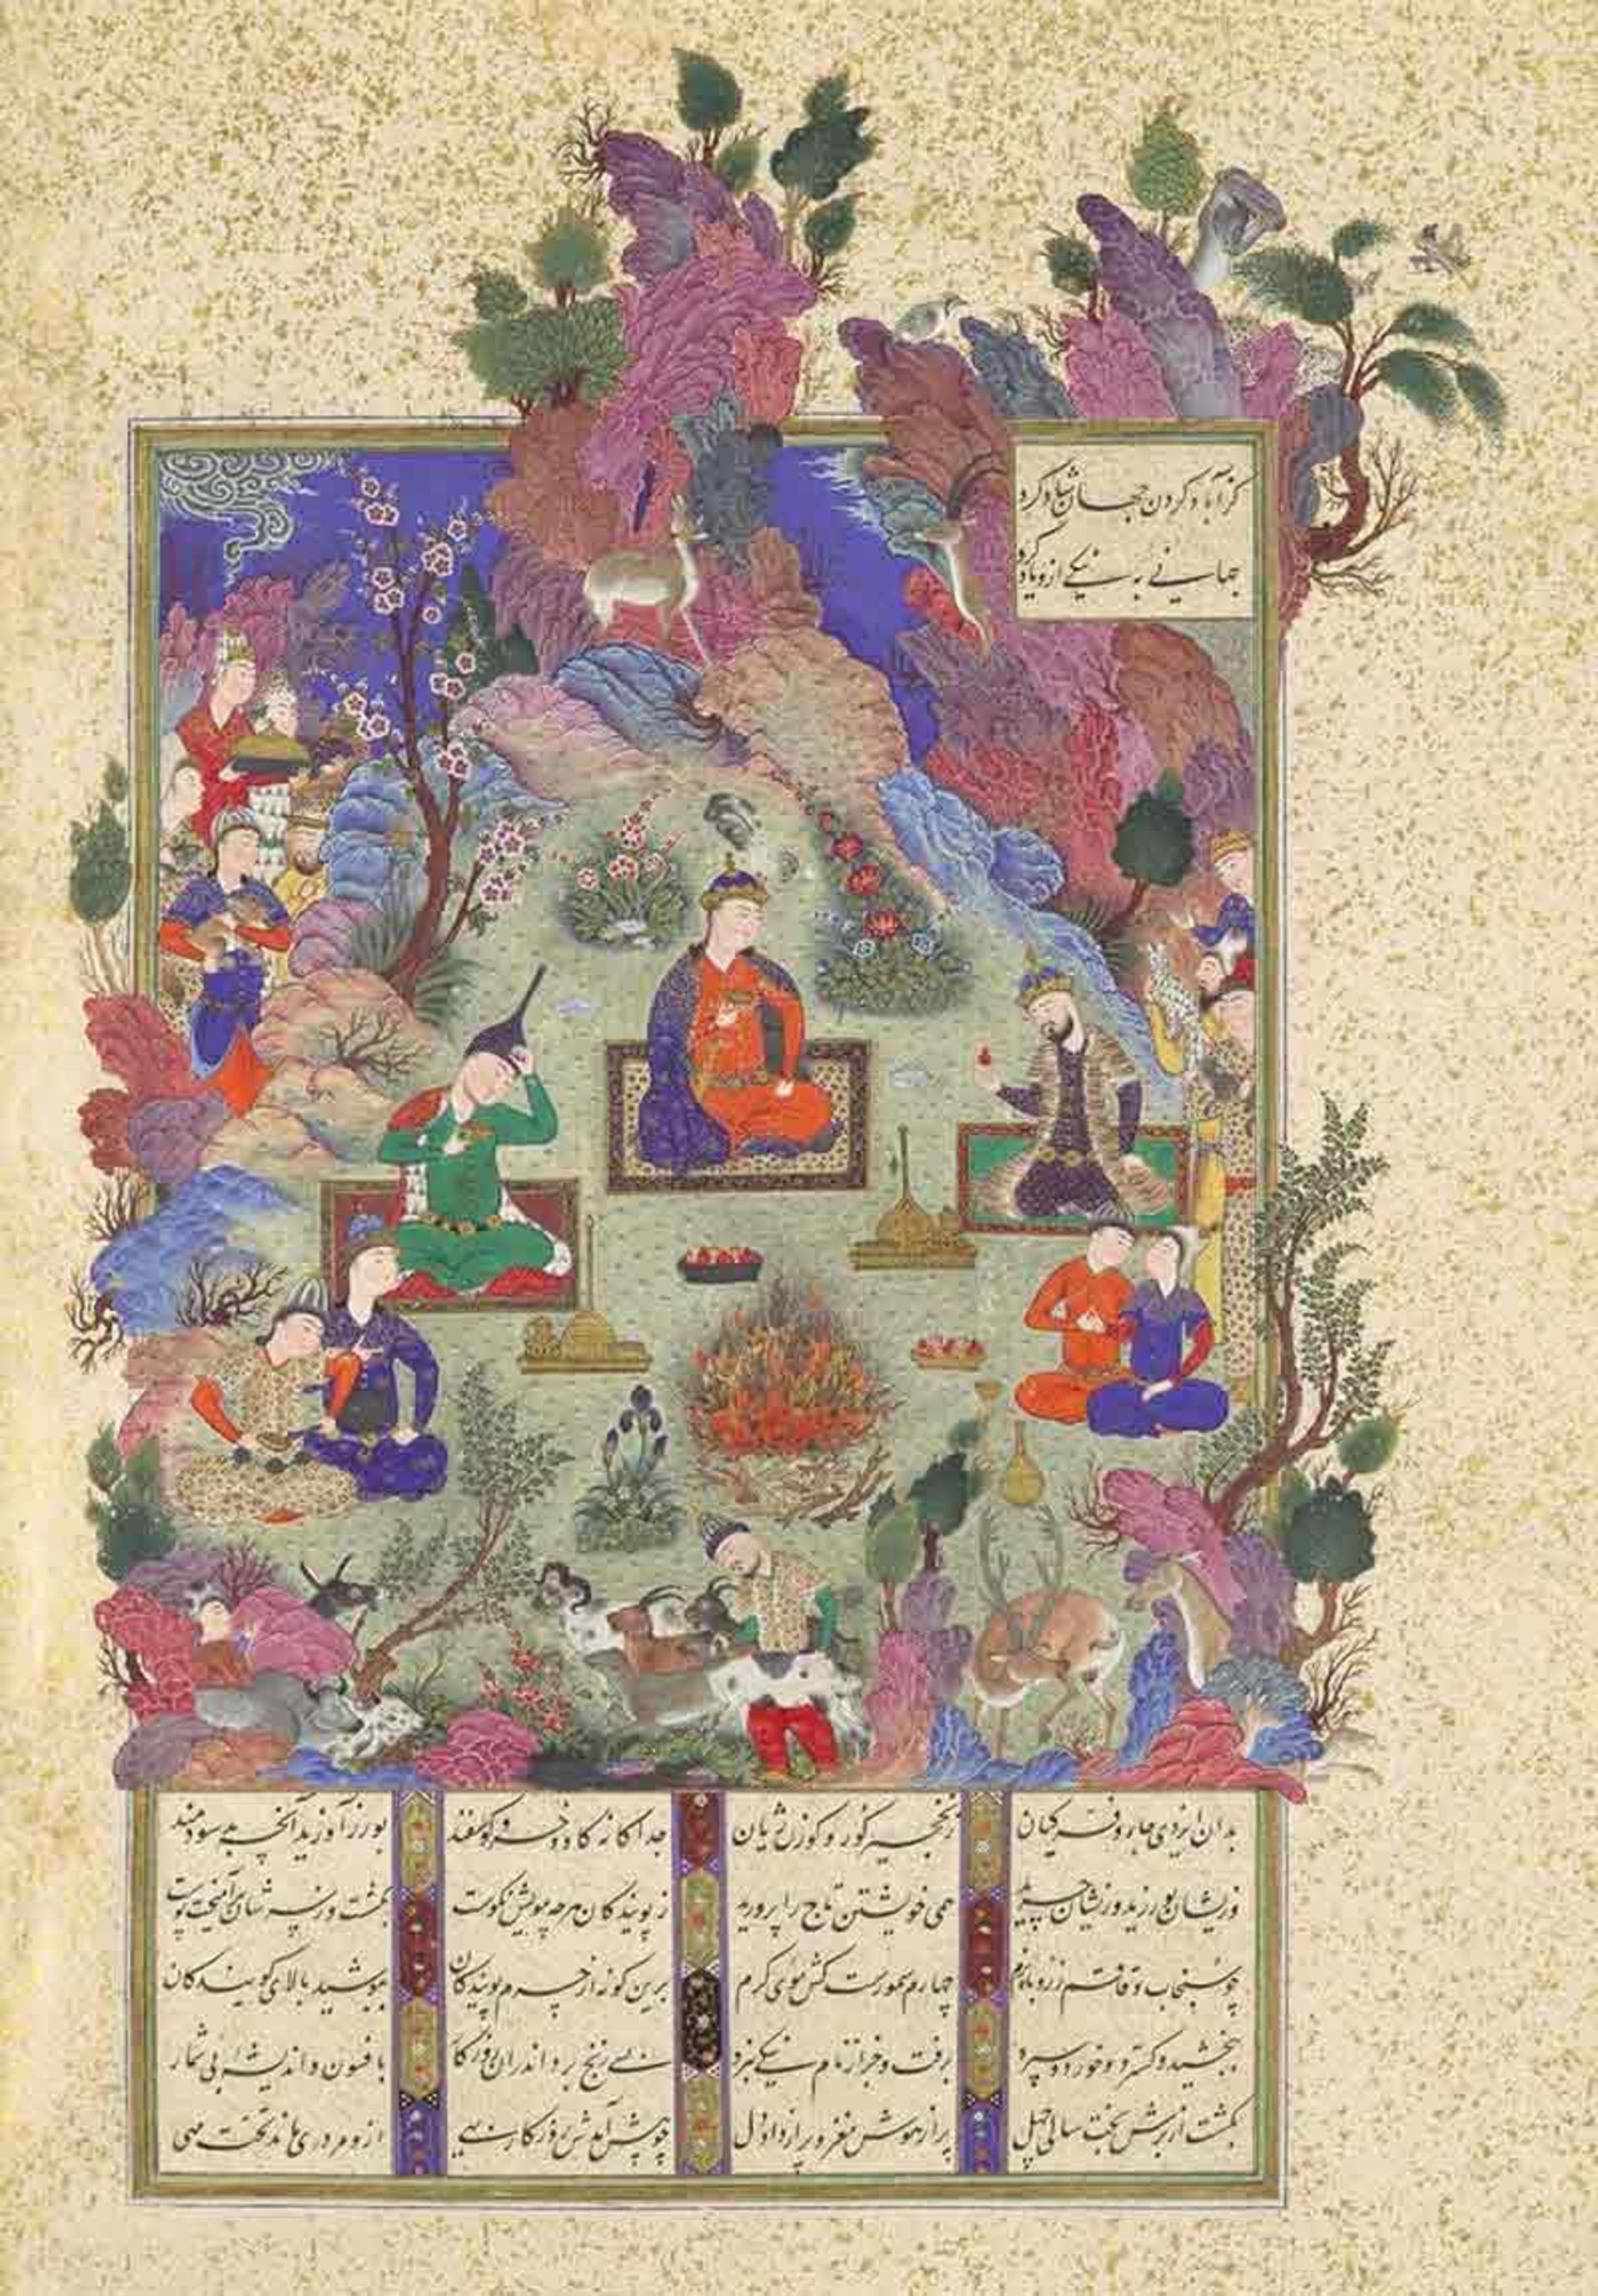 کز آباد کردن جهان شاد کرد
جهانی به نیکی ازو یاد کرد
بدان ایزدی جاه و فر کیان ز نخجیر کور و کوزن ژیان جداکانه کاو و خر و کوسفند بورز آورید آنچه بد سودمند
وزیشان بورزید وزیشان چرید همی خویشتن تاج را پرورید ز پویندکان هرچه مویش نکوست بکشت وز سرشان برآهیخت پوست
چو سنجاب و قاقم ز روباه نرم چهارم سمورست کش موی کرم برین کونه از چرم پویندکان بپوشید بالای کویندکان
ببخشید و کسترد و خورد و سپرد برفت و جز از نام نیکی نبرد بسی رنج برد اندران روزکار بافسون و اندیشه بی شمار
بکشت از برش بخت سالی چهل پر از هوش مغز و پر از داد دل چو پیش آمدش روزکار بهی ازو مردری ماند تخت مهی